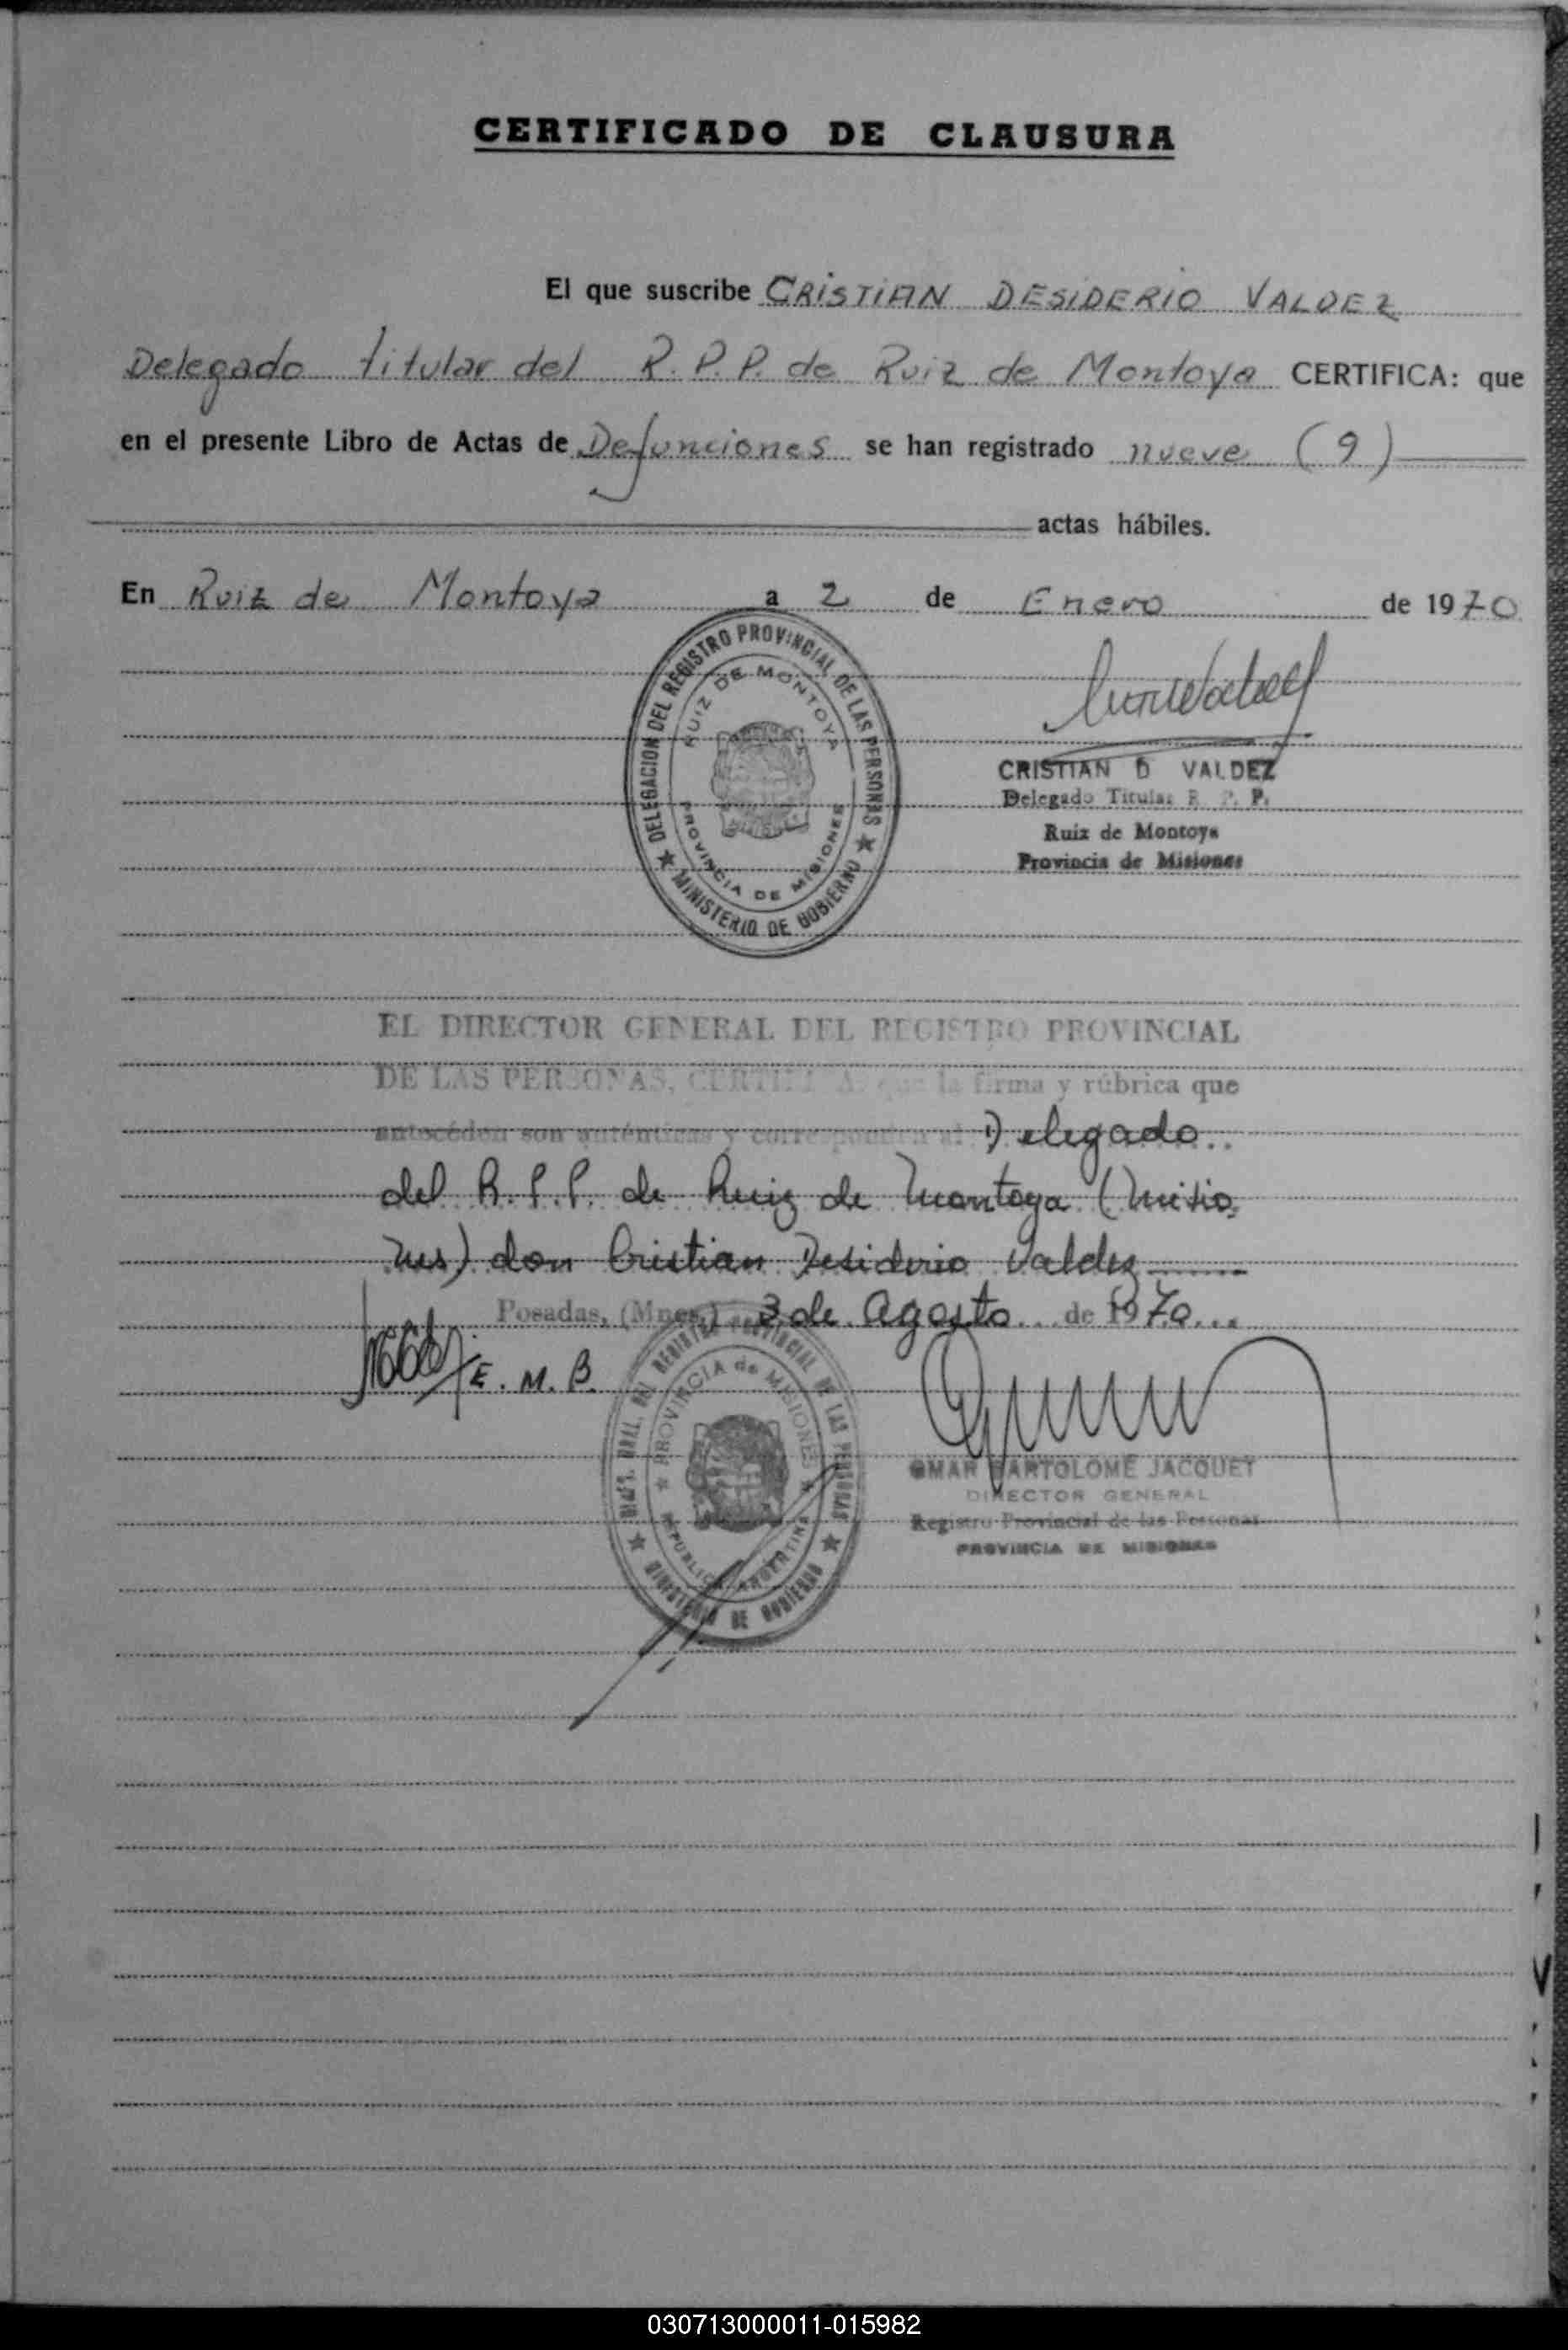 CERTIFICADO DE CLAUSURA
El que suscribe CRISTIAN DESIDERIO VALDEZ
Delegado titular del R. P. P. de Ruiz de Montoya CERTIFICA: que
en el presente Libro de Actas de Defunciones se han registrado nueve (9)
actas hábiles.
En Ruiz de Montoya a 2 de Enero de 1970
DELEGACION DEL REGISTRO PROVINCIAL DE LAS PERSONAS
RUIZ DE MONTOYA
PROVINCIA DE MISIONES
MINISTERIO DE GOBIERNO
CRISTIAN D VALDEZ
Delegado Titular R. P. P.
Ruiz de Montoya
Provincia de Misiones
EL DIRECTOR GENERAL DEL REGISTRO PROVINCIAL
DE LAS PERSONAS, CERTIFICA: que la firma y rúbrica que
anteceden son auténticas y corresponden al Delegado
del R. P. P. de Ruiz de Montoya (Misio-
nes) don Cristian Desiderio Valdez
Posadas, (Mnes.) 3 de Agosto de 1970
E. M. B.
REGISTRO PROVINCIAL DE LAS PERSONAS
PROVINCIA de MISIONES
REPUBLICA ARGENTINA
MINISTERIO DE GOBIERNO
OMAR BARTOLOME JACQUET
DIRECTOR GENERAL
Registro Provincial de las Personas
PROVINCIA DE MISIONES
030713000011-015982